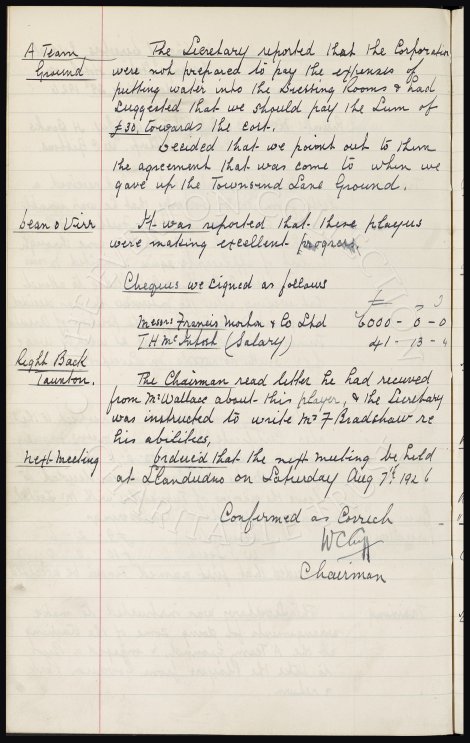 A Team
Ground
The Secretary reported that the Corporation
were not prepared to pay the expenses of
putting water into the Dressing Rooms & had
suggested that we should pay the sum of
£30, towards the cost.
Decided that we point out to them
the agreement that was come to when we
gave up the Townsend Lane Ground.
Dean & Virr
It was reported that these players
were making excellent progress.
Cheques we signed as follows
£
Messrs Francis Morton & Co Ltd 6000 - 0 - 0
T.H. McIntosh (Salary) 41 - 13 - 4
Right Back
Taunton.
The Chairman read letter he had received
from Mr Wallace about this player, & the Secretary
was instructed to write Mr F Bradshaw re
his abilities.
Next Meeting
Order'd that the next meeting be held
at Llandudno on Saturday Aug 7th 1926
Confirmed as Correct
W C Cuff
Chairman